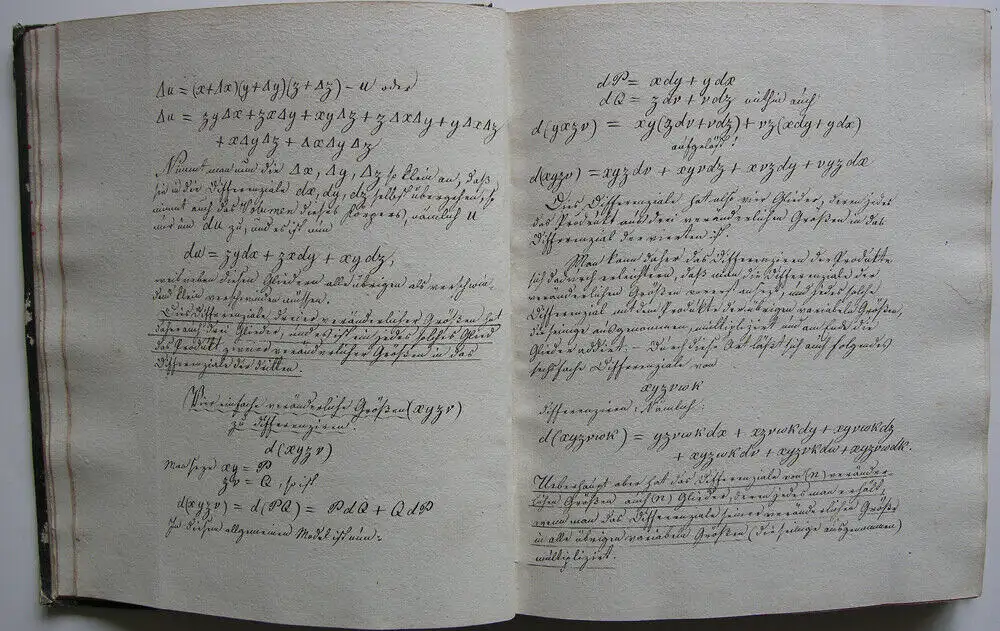 Δu = (x+Δx)(y+Δy)(z+Δz) - u oder
Δu = zyΔx + zxΔy + xyΔz + zΔxΔy + yΔxΔz
+ xΔyΔz + ΔxΔyΔz
Nimmt man nun die Δx, Δy, Δz so klein an, daß
sie in die Differenziale dx, dy, dz selbst übergehen, so
nimmt auch das Volumen dieses Körpers, nämlich u
nur um du zu, und es ist nun
du = zydx + zxdy + xydz,
weil neben diesen Gliedern alle übrigen als verschwin-
dend klein verschwinden müssen.
Das Differenziale dreier veränderlicher Größen hat
daher auch drei Glieder, und es ist ein jedes solches Glied
das Produkt zweier veränderlicher Größen in das
Differenziale der dritten.
Vier einfache veränderliche Größen (xyzv)
zu differenziren.
d(xyzv)
Man setze xy = P
zv = Q, so ist
d(xyzv) = d(PQ) = PdQ + QdP
In diesem allgemeinen Model ist nun:
dP = xdy + ydx
dQ = zdv + vdz mithin auch
d(yxzv) = xy(zdv+vdz) + vz(xdy+ydx)
aufgelöst:
d(xyzv) = xyzdv + xyvdz + xvzdy + vyzdx
Dies Differenziale hat also vier Glieder, deren jedes
das Produkt aus drei veränderlichen Größen in das
Differenzial der vierten ist.
Man kann daher das Differenziren der Produkte
sich dadurch erleichtern, daß man die Differenziale der
veränderlichen Größen zuerst ansetzt, und jedes solche
Differenzial mit dem Produkte der übrigen variabeln Größen,
die seinige ausgenommen, multiplizirt und am Ende die
Glieder addirt. - Durch diese Art läßt sich auch folgendes
sechsfache Differenziale von
xyzvwk
differenziren: Nämlich:
d(xyzvwk) = yzvwkdx + xzvwkdy + xyvwkdz
+ xyzwkdv + xyzvkdw + xyzvwdk.
Ueberhaupt aber hat das Differenziale von (n) veränder-
lichen Größen auch (n) Glieder, deren jedes man erhält,
wenn man das Differenziale seiner veränderlichen Größe
in alle übrigen variabeln Größen (die seinige ausgenommen)
multiplizirt.